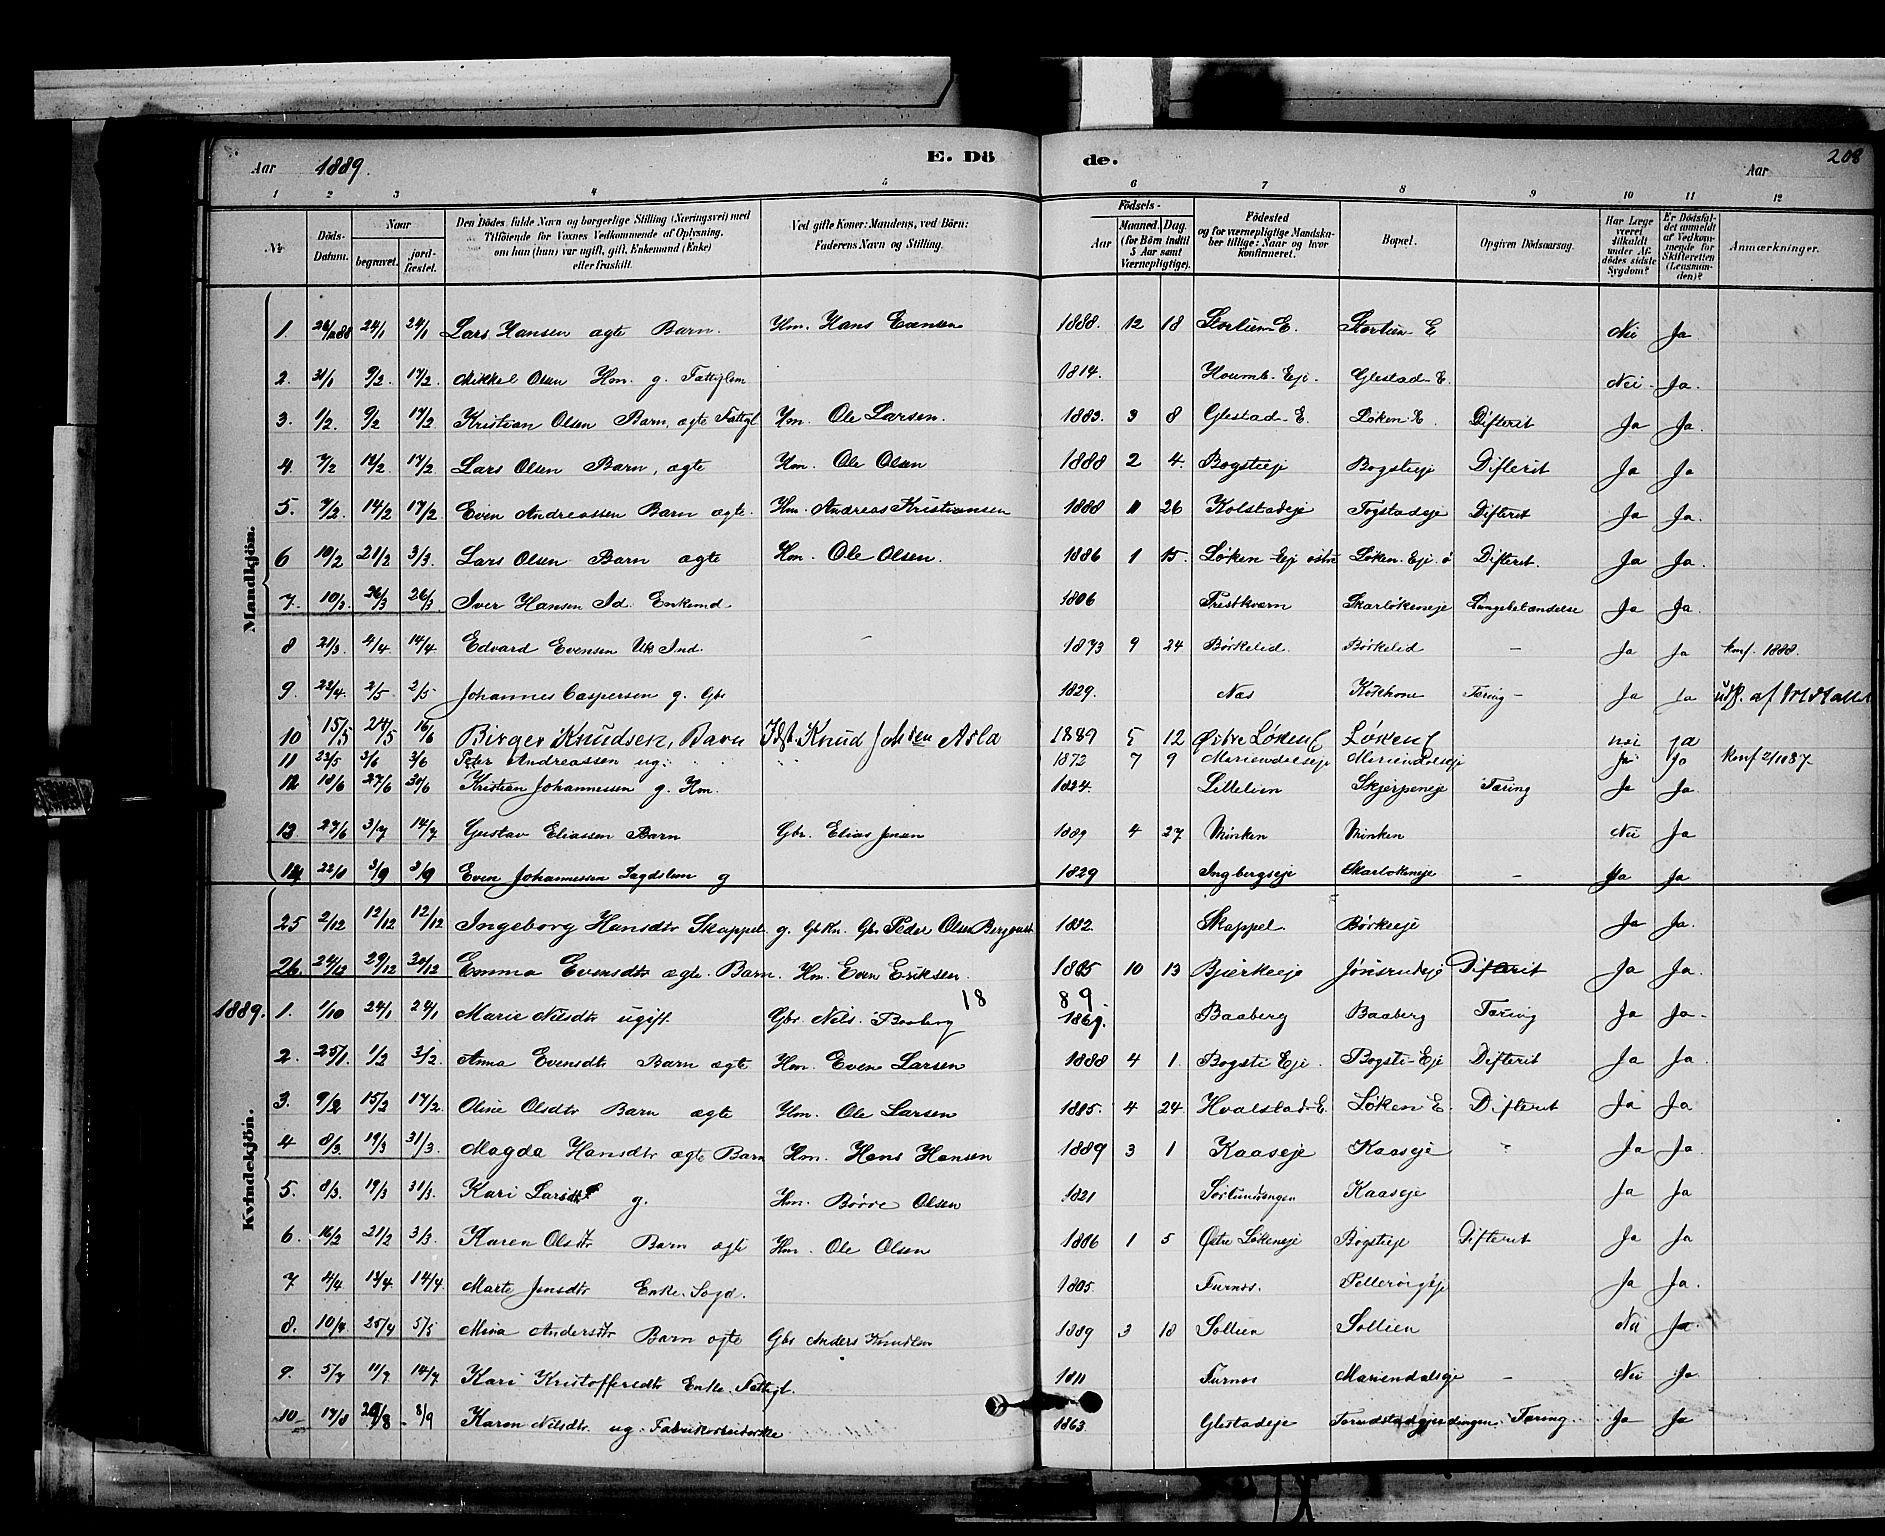 Aar 1889. E. Dö de. Aar 208
1 2 3 4 5 6 7 8 9 10 11 12
Nr
Döds-Datum.
Naar
begravet.
jord-fæstet.
Den Dödes fulde Navn og borgerlige Stilling (Næringsvei) med
Tilföiende for Voxnes Vedkommende af Oplysning,
om han (hun) var ugift, gift, Enkemand (Enke)
eller fraskilt.
Ved gifte Koner: Mandens, ved Börn:
Faderens Navn og Stilling.
Födsels-
Aar
Maaned. Dag.
(for Börn indtil
5 Aar samt
Værnepligtige).
Födested
og for værnepligtige Mandska-
ber tillige: Naar og hvor
konfirmeret.
Bopæl.
Opgiven Dödsaarsag.
Har Læge
været
tilkaldt
under Af-
dödes sidste
Sygdom?
Er Dödsfal-
det anmeldt
af Vedkom-
mende for
Skifteretten
(Lensman-
den)?
Anmærkninger.
Mandkjön.
1. 26/12 88 24/1 24/1 Lars Hansen ægte Barn. Hm. Hans Evensen 1888. 12 18 Stortien-E. Stortien-E Nei Ja
2. 31/1 9/2. 17/2. Mikkel Olsen Hm. g. Fattiglem 1814. Eje. Glestad-E. Nei Ja.
3. 1/2. 9/2 17/2. Kristian Olsen Barn, ægte Fattigl Hm. Ole Larsen. 1883. 3 8 Glestad-E. Løken-E. Difterit Ja Ja.
4. 7/2 14/2 17/2. Lars Olsen Barn, ægte Hm. Ole Olsen 1888 2 4. Bogstieje Bogstieje Difterit Ja Ja
5. 7/2. 14/2 17/2. Even Andreassen Barn ægte. Hm. Andreas Kristiansen 1888 11 26 Kolstadeje Togstadeje Difterit Ja Ja.
6 10/2 21/2 3/3. Lars Olsen Barn ægte Hm. Ole Olsen. 1886 1 15. Løken-Eje østre Løken-Eje ø Difterit. Ja Ja
7. 10/3 26/3 26/3 Iver Hansen Enkemd 1806 Prestkværn Skarløkeneje Lungebetændelse Ja Ja.
8 21/3. 4/4 14/4 Edvard Evensen 1873 9 24 Børkelid. Børkelid — Ja Ja konf. 1888.
9. 22/4. 2/5 2/5 Johannes Caspersen g. Gbr 1829. Næs Tæring- Ja Ja
10 15/5 24/5 16/6 Birger Knudsen, Barn Knud 1889 5 12 Østre Løken E Løken E nei ja
11 23/5 3/6 3/6 Peter Andreassen ug. 1872 7 9 Mariendalseje Mariendalseje Ja Ja konf 2/10 87
12 18/6 27/6 30/6 Kristian Johannessen g. Hm. 1824. Lillelien Skjerpeneje Tæring Ja Ja.
13. 27/6 3/7 14/7 Gustav Eliassen Barn Gbr. Elias Jensen 1889 4 27 Vinken Vinken Nei Ja
14 22/8 3/9 3/9 Even Johannessen g 1829 Ingbergseje Skarløkeneje — Ja Ja
Kvindekjön.
25 2/12 12/12 12/12 Ingeborg Hansdtr Skappel g. Gbr. Peder Olsen 1832. Skappel. Børkeeje Ja Ja
26. 24/12 29/12 30/12 Emma Evensdtr ægte Barn. Hm. Even Eriksen. 1885 10 13 Bjerkeeje Jønsrudeje Difterit Ja Ja.
1889. 1. 1/10 24/1 24/1 Marie Nilsdtr ugift Gbr Nils Baaberg 18 89. 1869. Baaberg Baaberg Tæring Ja Ja-
2. 25/1. 1/2 3/2. Anna Evensdtr Barn ægte Hm. Even Larsen 1888 4 1. Bogsti Eje. Bogsti-Eje Difterit Ja Ja.
3. 9/2 15/2 17/2. Oline Olsdtr Barn ægte Hm. Ole Larsen 1885. 4 24. Hvalstad-E. Løken E. Difterit Ja Ja
4 8/3. 19/3 31/3. Magda Hansdtr ægte Barn Hm. Hans Hansen 1889 3 1 Kaaseje Kaaseje Ja Ja.
5. 8/3. 19/3 31/3. Kari Larsdtr g. Hm. Børre Olsen 1821 Sørlundengen Kaaseje Ja Ja
6. 16/2 21/2 3/3. Karen Olsdtr Barn ægte Hm. Ole Olsen 1886 1 5 Østre Løkeneje Bogstieje Difterit Ja Ja
7 4/4 13/4 14/4. Marte Jensdtr Enke. 1805. Furnes. Ja Ja.
8. 10/4 25/4 5/5 Mina Andersdtr Barn ægte Gbr Anders Knudsen 1889 3 18 Sollien Sollien Nei Ja.
9. 5/7 11/7 14/7 Kari Kristoffersdtr Enke. Fattigl. 1811 Furnes Mariendalseje — Nei Ja.
10 17/8 26/8 8/9 Karen Nilsdtr ug. Fabrikarbeiderske 1863 Glestadeje Tæring Ja Ja